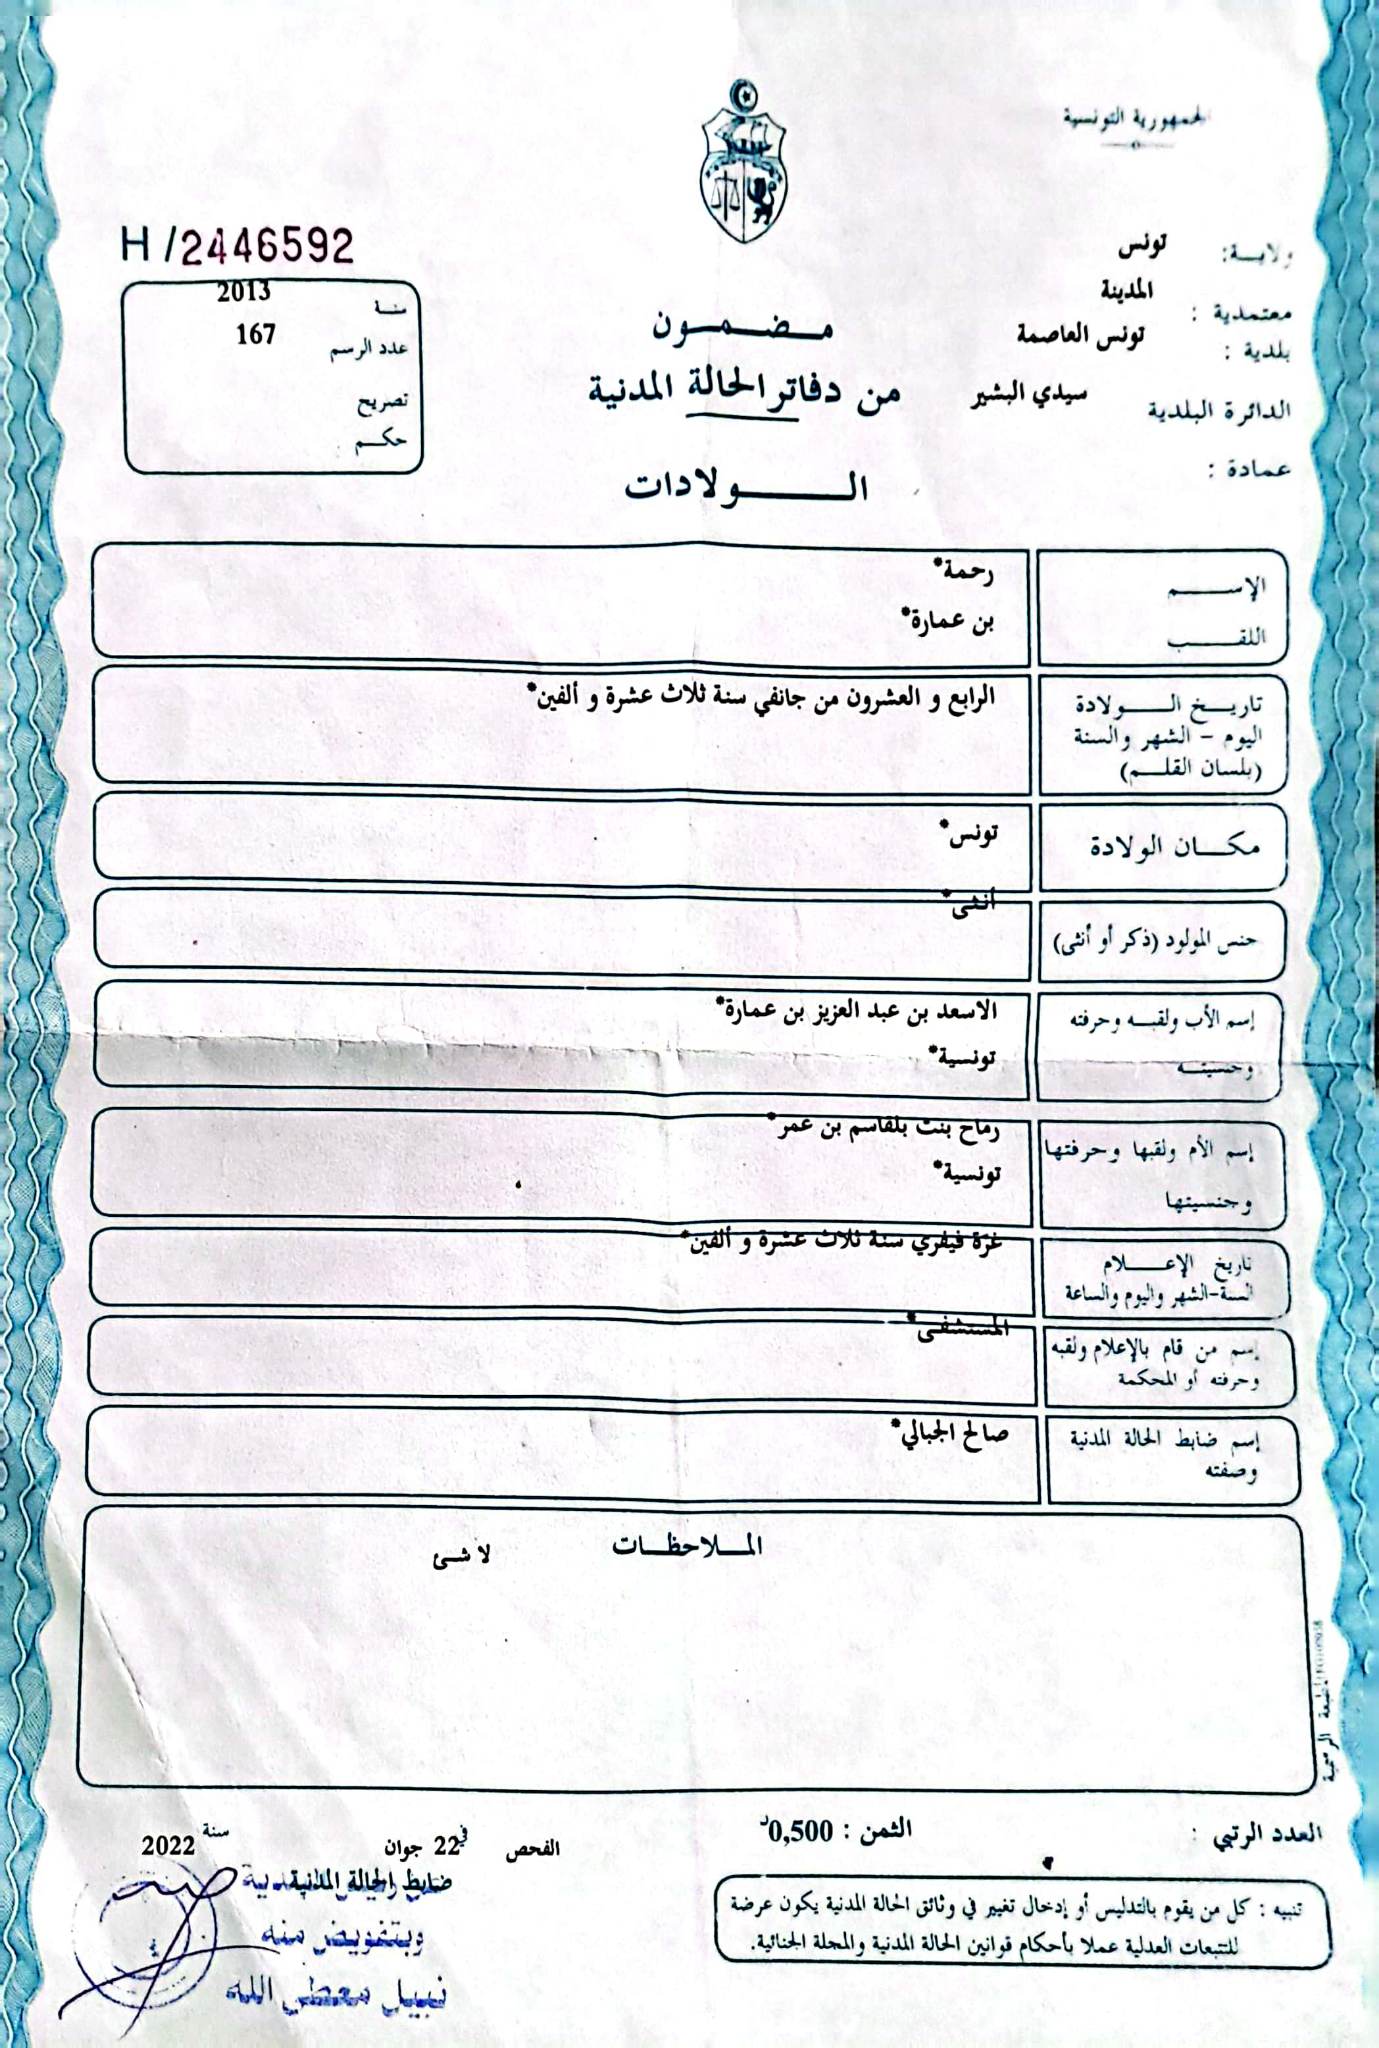 الجمهورية التونسية
ولاية: تونس
معتمدية : المدينة
بلدية : تونس العاصمة
الدائرة البلدية سيدي البشير
عمادة :
H/2446592
سنة 2013
عدد الرسم 167
تصريح
حكم
مضمون
من دفاتر الحالة المدنية
الولادات
الإسم رحمة*
اللقب بن عمارة*
تاريخ الولادة الرابع و العشرون من جانفي سنة ثلاث عشرة و ألفين*
اليوم - الشهر والسنة
(بلسان القلم)
مكان الولادة تونس*
جنس المولود (ذكر أو أنثى) أنثى*
إسم الأب ولقبه وحرفته الاسعد بن عبد العزيز بن عمارة*
وجنسيته تونسية*
إسم الأم ولقبها وحرفتها رماح بنت بلقاسم بن عمر*
وجنسيتها تونسية*
تاريخ الإعلام غرة فيفري سنة ثلاث عشرة و ألفين*
السنة-الشهر واليوم والساعة
إسم من قام بالإعلام ولقبه المستشفى*
وحرفته أو المحكمة
إسم ضابط الحالة المدنية صالح الجبالي*
وصفته
الملاحظات
لا شئ
المطبعة الرسمية
العدد الرتبي :
الثمن : 0,500د
الفحص في 22 جوان سنة 2022
ضابط الحالة المدنية
وبتفويض منه
نبيل معطى الله
تنبيه : كل من يقوم بالتدليس أو إدخال تغيير في وثائق الحالة المدنية يكون عرضة
للتتبعات العدلية عملا بأحكام قوانين الحالة المدنية والمجلة الجنائية.